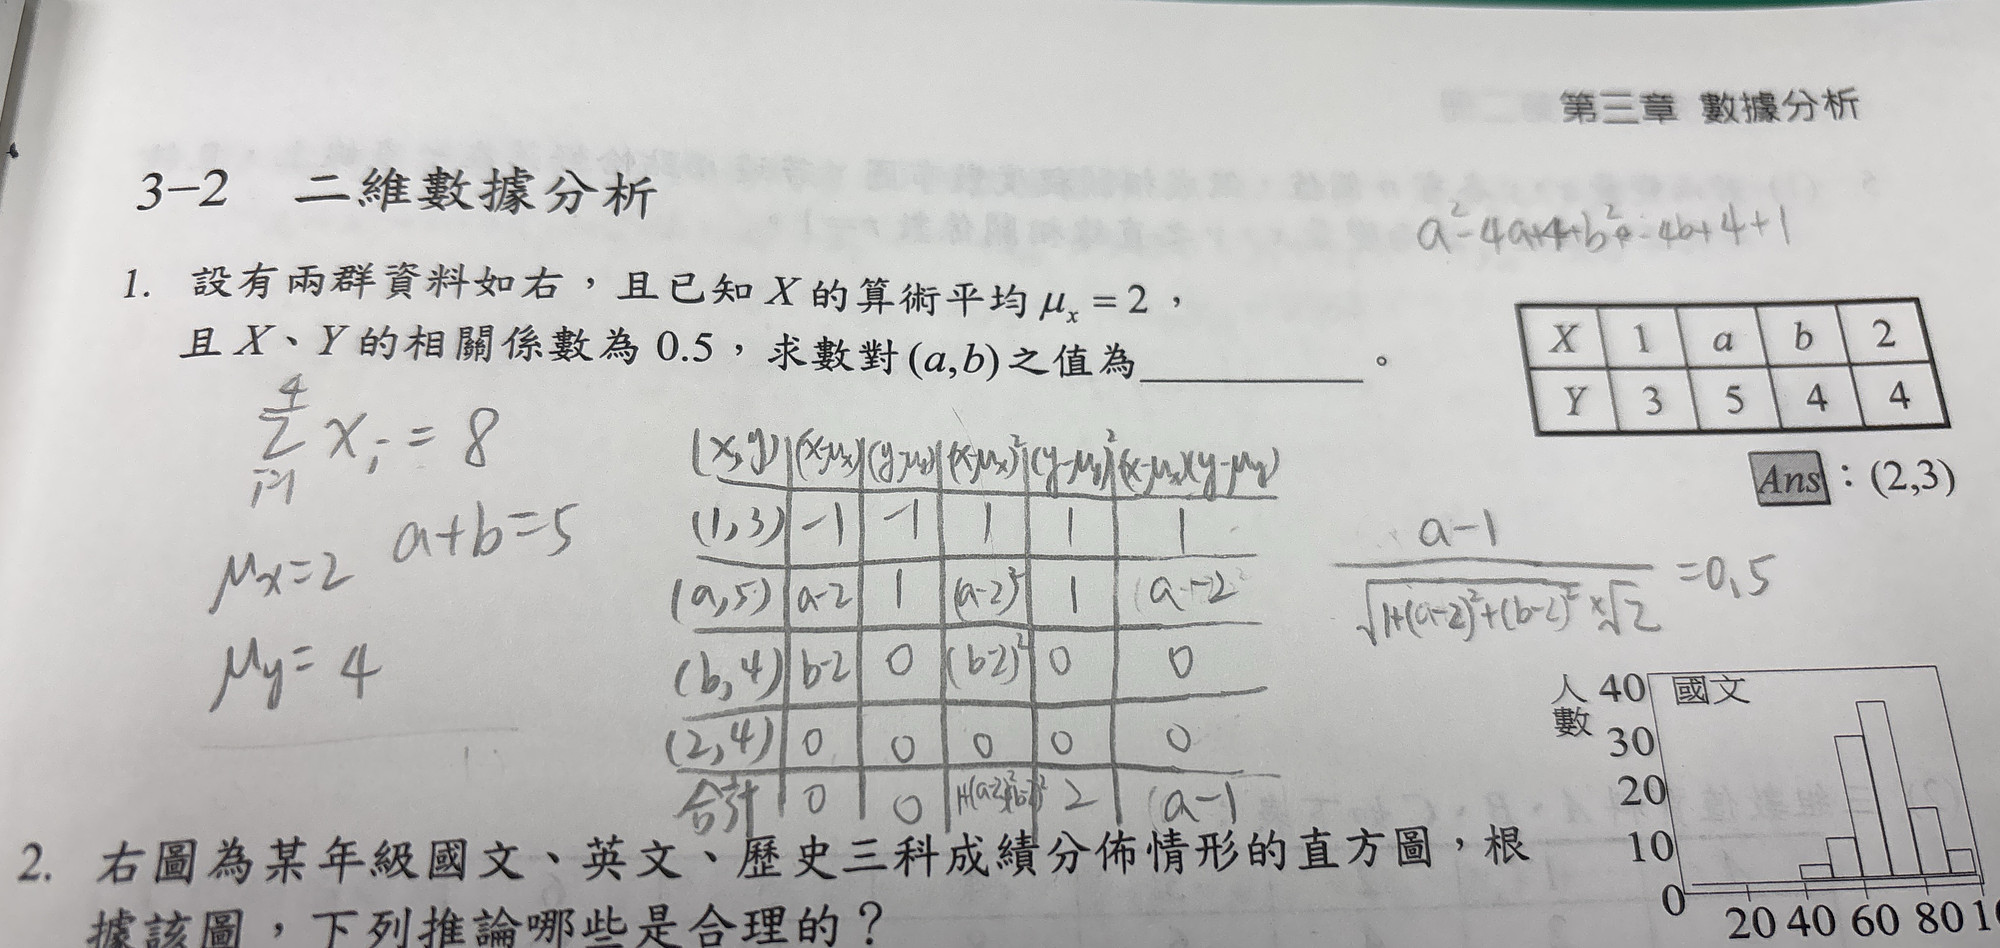 第三章 數據分析
3-2 二維數據分析
a²-4a+4+b²-4b+4+1
1. 設有兩群資料如右,且已知 X 的算術平均 μx = 2,
且 X、Y 的相關係數為 0.5,求數對(a,b)之值為__________。
X 1 a b 2
Y 3 5 4 4
Ans:(2,3)
4
Σ xi = 8
i=1
a+b=5
μx=2
μy=4
(x,y) (x-μx) (y-μy) (x-μx)² (y-μy)² (x-μx)(y-μy)
(1,3) -1 -1 1 1 1
(a,5) a-2 1 (a-2)² 1 a-2
(b,4) b-2 0 (b-2)² 0 0
(2,4) 0 0 0 0 0
合計 0 0 1+(a-2)²+(b-2)² 2 a-1
a-1
√1+(a-2)²+(b-2)² ×√2 =0.5
2. 右圖為某年級國文、英文、歷史三科成績分佈情形的直方圖,根
據該圖,下列推論哪些是合理的?
人數
國文
40
30
20
10
0
20 40 60 80